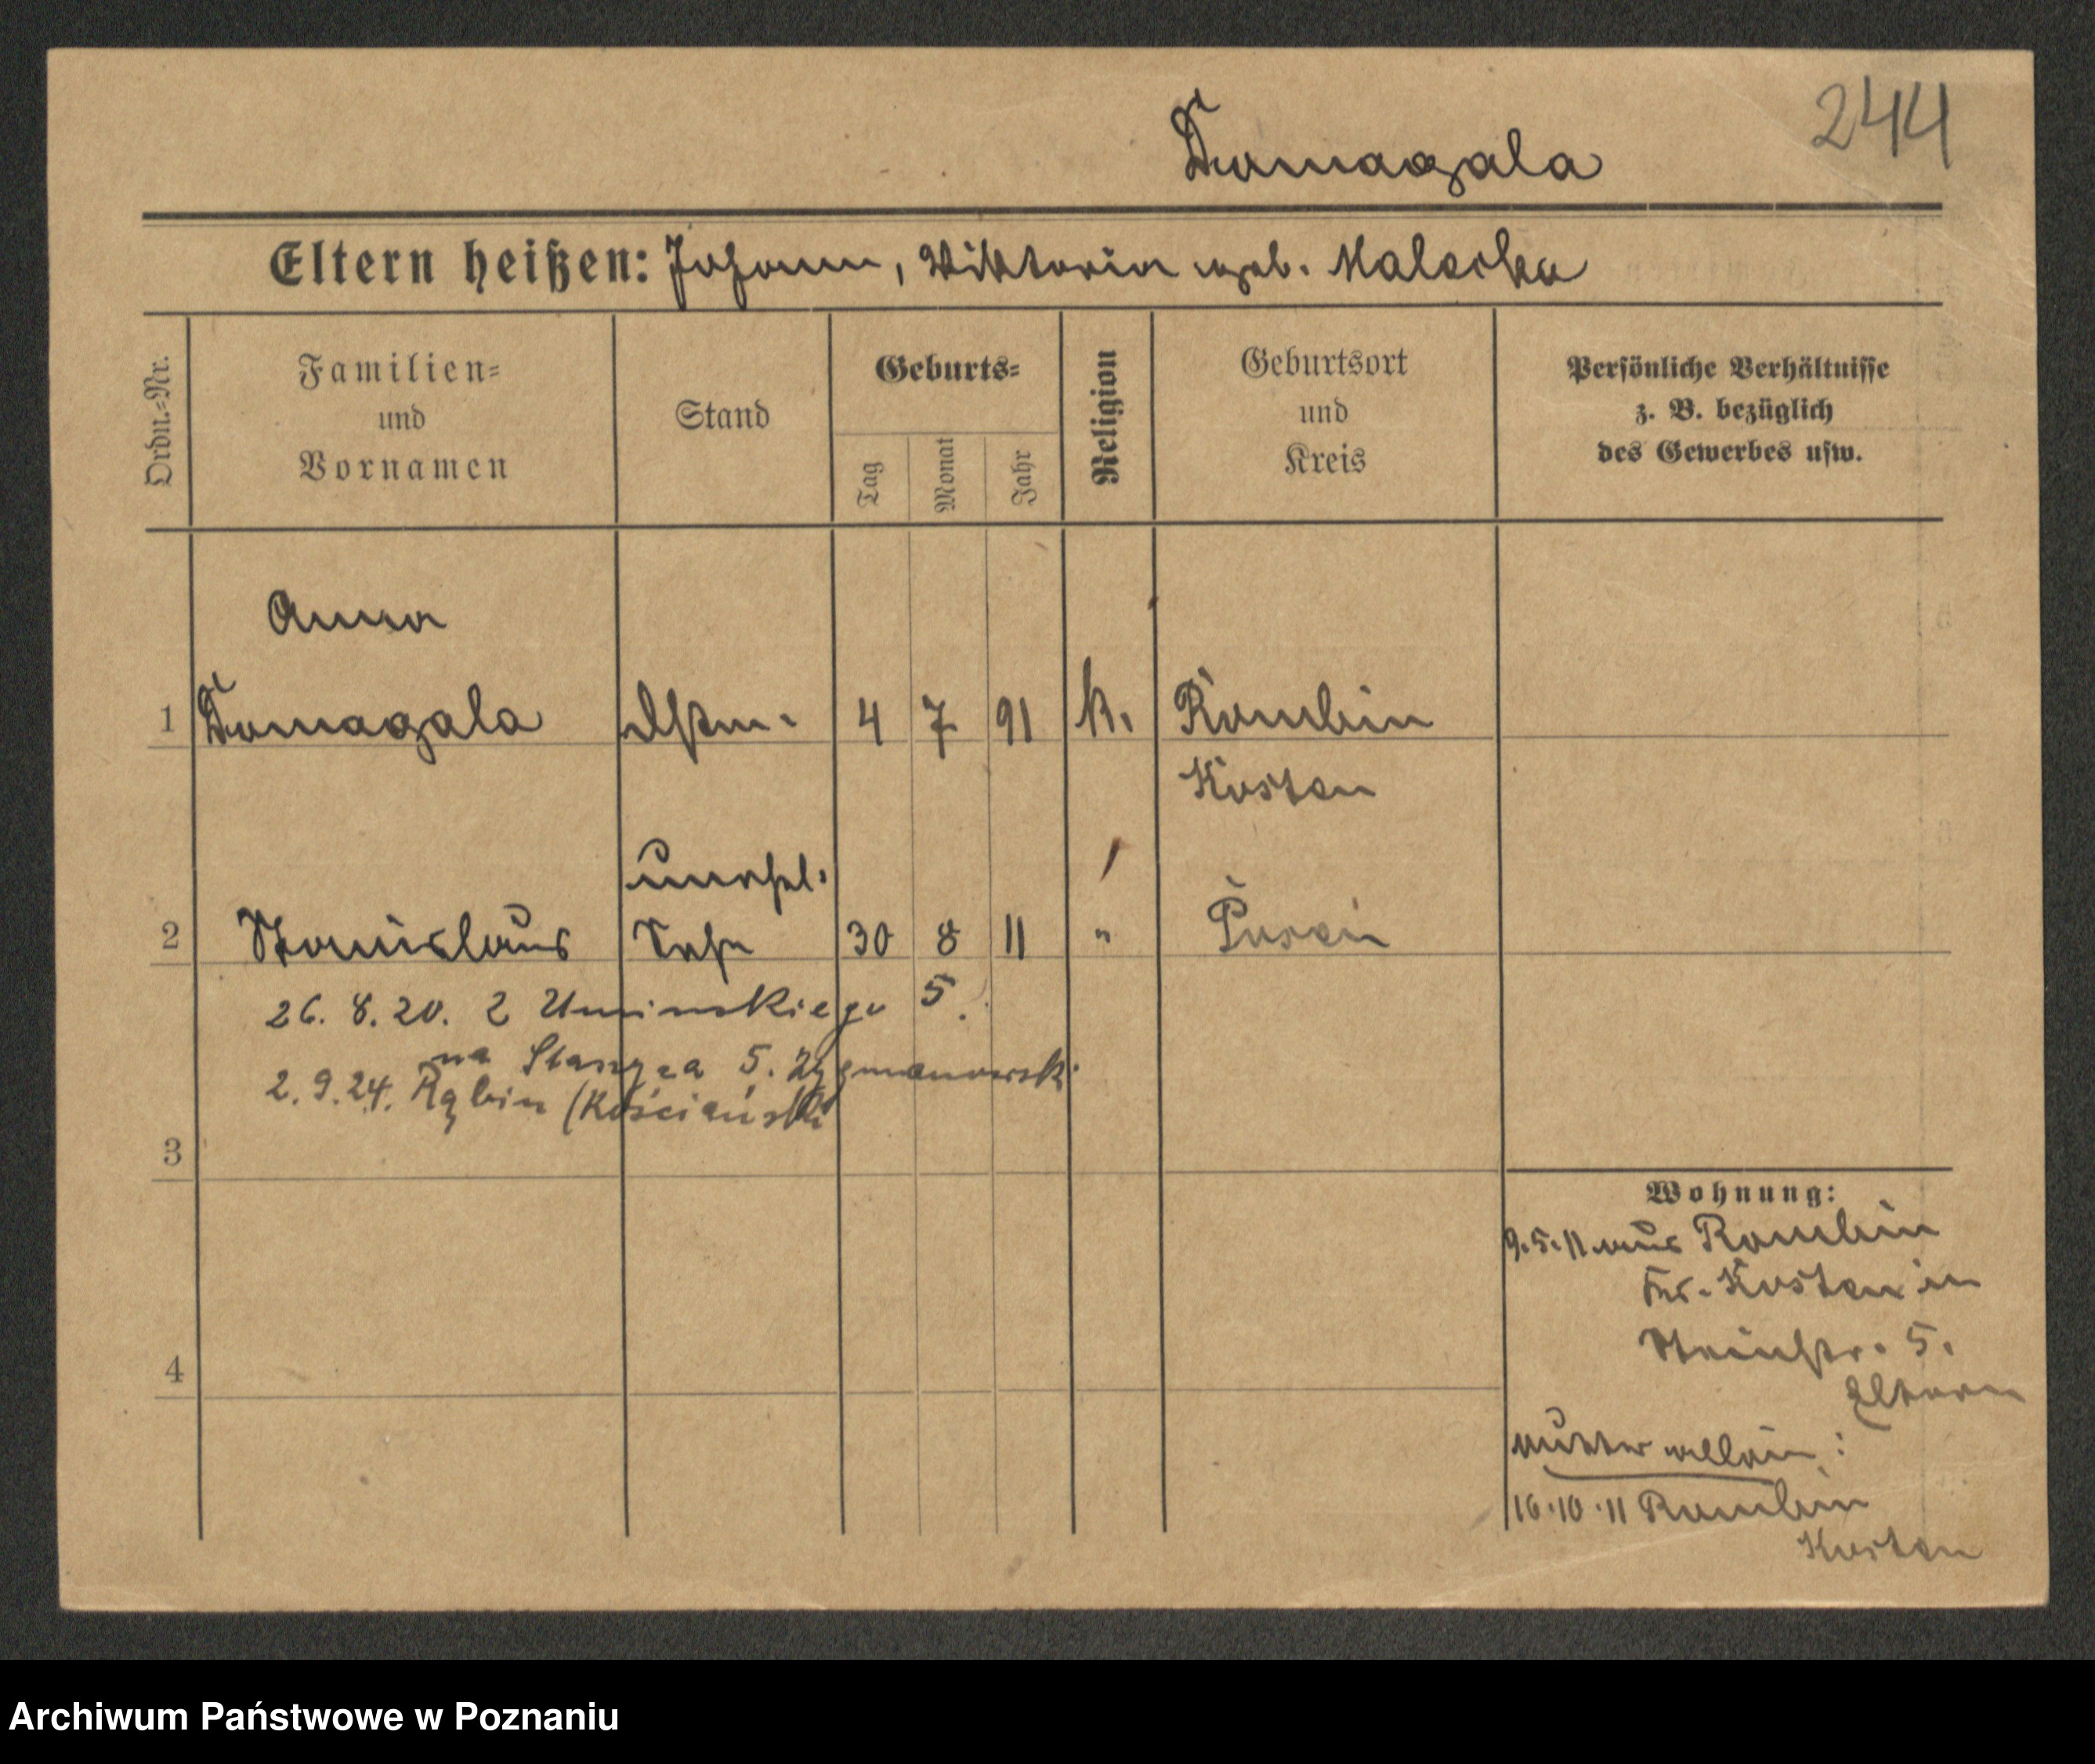 244
Domagala
Eltern heißen: Johann, Viktoria geb. Malecka
Ordn.-Nr.
Familien-
und
Vornamen
Stand
Geburts-
Tag
Monat
Jahr
Religion
Geburtsort
und
Kreis
Persönliche Verhältnisse
z. B. bezüglich
des Gewerbes usw.
Anna
1 Domagala 4 7 91 k. Rombin
Kosten
unehel.
2 Stanislaus Sohn 30 8 11 " Posen
26. 8. 20. 2 Uminskiego 5.
na 5.
2. 9. 24. Rąbin (Kościański
3
4
Wohnung:
9.5.11 aus Rombin
Krs. Kosten in
5.
Eltern
Mutter allein:
10.11 Rombin
Kosten
Archiwum Państwowe w Poznaniu